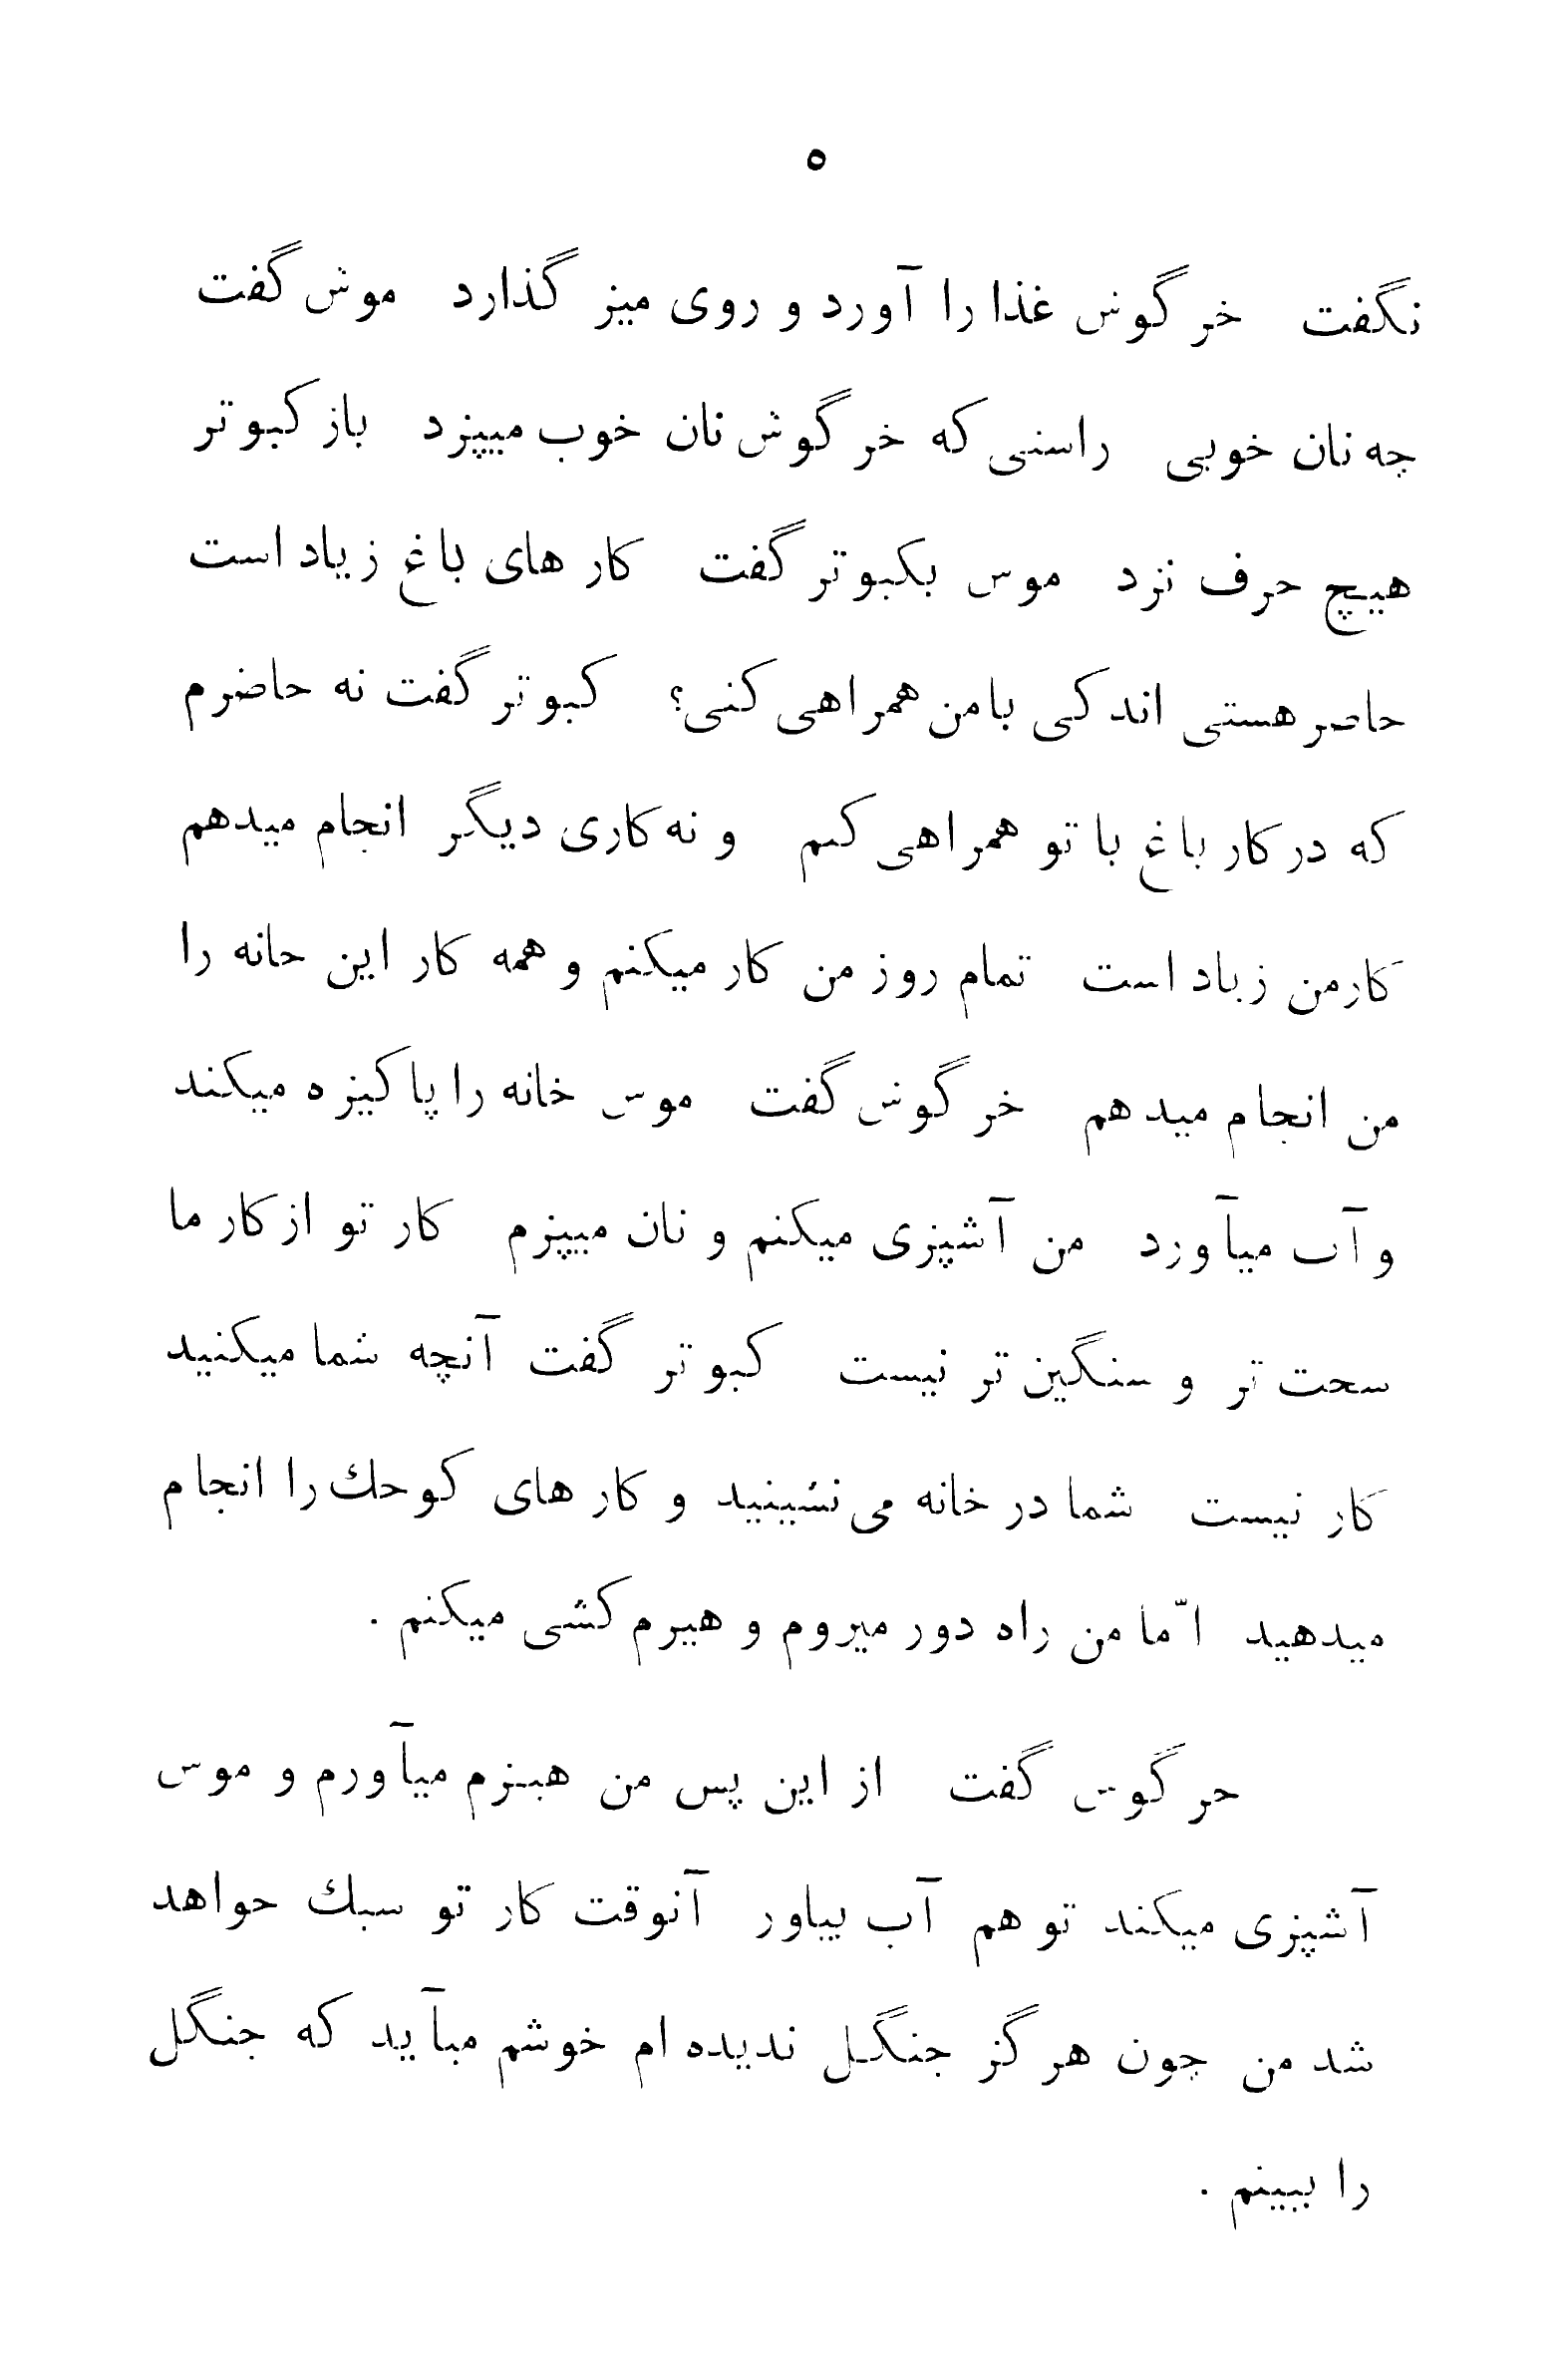 ۵
نگفت خرگوش غذا را آورد و روی میز گذارد موش گفت
چه نان خوبی راستی که خرگوش نان خوب میپزد باز کبوتر
هیچ حرف نزد موش بکبوتر گفت کار های باغ زیاد است
حاضر هستی اندکی با من همراهی کنی؟ کبوتر گفت نه حاضرم
که در کار باغ با تو همراهی کنم و نه کاری دیگر انجام میدهم
کار من زیاد است تمام روز من کار میکنم و همه کار این خانه را
من انجام میدهم خرگوش گفت موش خانه را پاکیزه میکند
و آب میآورد من آشپزی میکنم و نان میپزم کار تو از کار ما
سخت تر و سنگین تر نیست کبوتر گفت آنچه شما میکنید
کار نیست شما در خانه می نشینید و کار های کوچك را انجام
میدهید امّا من راه دور میروم و هیزم کشی میکنم .
خرگوش گفت از این پس من هیزم میآورم و موش
آشپزی میکند تو هم آب بیاور آنوقت کار تو سبك خواهد
شد من چون هرگز جنگل ندیده ام خوشم میآید که جنگل
را ببینم .